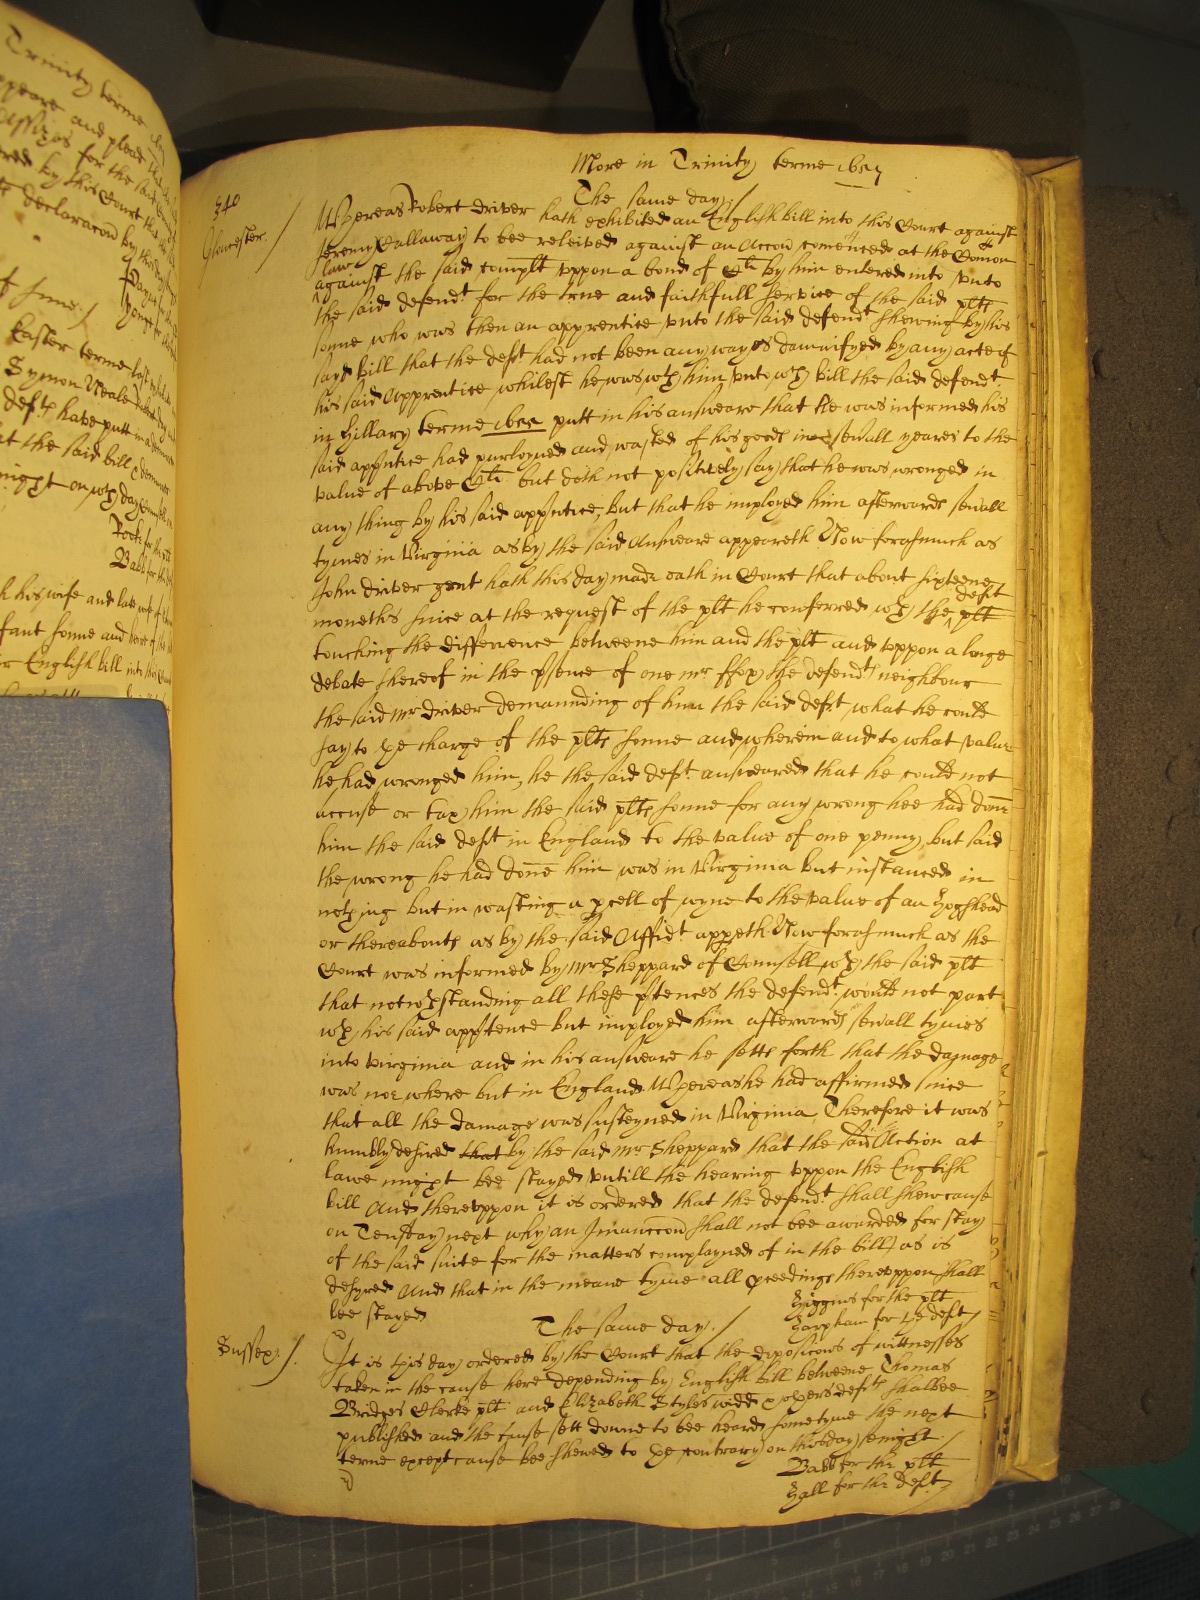 Trinity terme
appeare and plead
Assizes for the said
by this Court
declaracon by
Easter terme last
Symon Neale
defts have putt in a demurrer
the said bill & demurrer
on wch day
Babb for the
his wife and late wife of
infant sonne and heire of
English bill into this Court
More in Trinity terme
340
The same day /
Gloucester /
Whereas Robert Driver hath exhibited an English bill into this Court against
Jeremy Callaway to bee releived against an Accon comenced at the Comon
lawe
against the said complt uppon a bond of Cli by him entered into unto
the said defendt for the true and faithfull service of the said plts
sonne who was then an apprentice unto the said defendt shewing by his
sayd bill that the deft had not been any wayes damnifyed by any acte of
his said Apprentice whilest he was wth him unto wch bill the said defendt
in Hillary terme putt in his answeare that he was informed his
said appntice had purloyned and wasted of his goods in sevall yeares to the
value of above Cli but doth not positively say that he was wronged in
any thing by his said appntice, but that he imployed him afterwards sevall
tymes in Virginia as by the said Answeare appeareth Now forasmuch as
John Driver gent hath this day made oath in Court that about sixteene
deft
moneths since at the request of the plt he conferred wth the plt
touching the difference betweene him and the plt and uppon a large
debate thereof in the psence of one mr ffox the defendts neighbour
the said Mr Driver demaunding of him the said deft what he could
say to ye charge of the plts sonne and wherein and to what value
he had wronged him, he the said deft answeared that he could not
accuse or tax him the said plts sonne for any wrong hee had done
him the said deft in England to the value of one penny but said
the wrong he had done him was in Virginia but instanced in
nothing but in wasting a pcell of wyne to the value of an hogshead
or thereabouts as by the said Affidt appeth Now forasmuch as the
Court was informed by Mr Sheppard of Counsell wth the said plt
that notwthstanding all these ptences the defendt would not part
wth his said apptence but imployed him afterwards sevall tymes
into virginia and in his answeare he setts forth that the damage
was noe where but in England Whereas he had affirmed since
that all the damage was susteyned in Virginia Therefore it was
humbly desired that by the said Mr Sheppard that the said Action at
lawe might bee stayed untill the hearing uppon the English
bill And thereuppon it is ordered that the defendt shall shew cause
on Teusday next why an Iniunccon shall not bee awarded for stay
of the said suite for the matters complayned of in the bill as is
desyred And that in the meane tyme all pceedings thereuppon shall
bee stayed
Higgins for the plt
Harpham for the deft /
The same day. /
Sussex /
It is this day ordered by the Court that the deposicons of wittnesses
taken in the cause here depending by English bill betweene Thomas
Bridges Clerke plt and Elizabeth Styles widd & others defts shalbee
published and the cause sett downe to bee heard sometyme the next
terme except cause bee shewed to ye contrary on thisday sennight /
Babb for the plt
Hall for the deft /